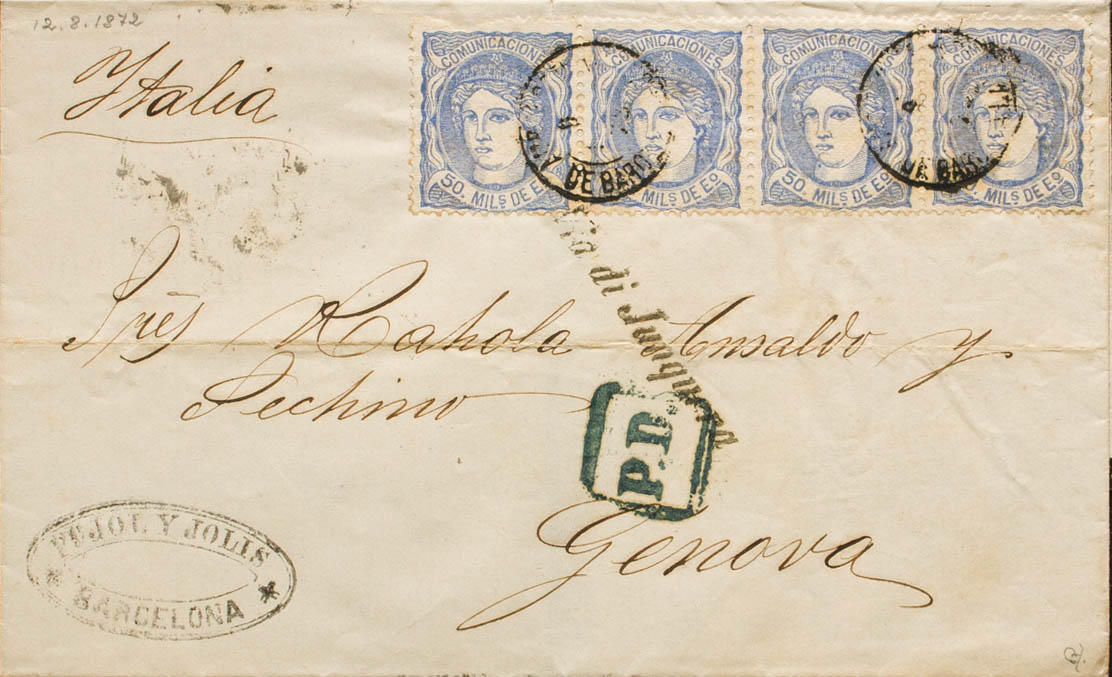 12.8.1872
Italia
COMUNICACIONES COMUNICACIONES COMUNICACIONES COMUNICACIONES
50 MILS DE Eo 50. MILS DE Eo 50 MILS DE Eo 50. MILS DE Eo
DE BARC
DE BARC
di Junquera
Sres Rahola Ansaldo y
Pechino
P.D.
Genova
PUJOL Y JOLIS
* BARCELONA *